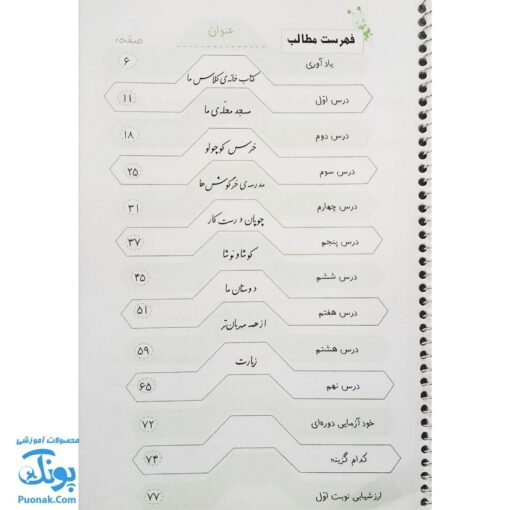 فهرست مطالب عنوان صفحه
یادآوری ۶
درس اوّل کتاب خانه‌ی کلاس ما ۱۱
درس دوم مسجد محلّه‌ی ما ۱۸
درس سوم خرس کوچولو ۲۵
درس چهارم مدرسه‌ی خرگوش‌ها ۳۱
درس پنجم چوپان درست کار ۳۷
درس ششم کوشا و نوشا ۴۵
درس هفتم دوستان ما ۵۱
درس هشتم از همه مهربان‌تر ۵۹
درس نهم زیارت ۶۵
خود آزمایی دوره‌ای ۷۲
کدام گزینه ۷۴
ارزشیابی نوبت اوّل ۷۷
محصولات آموزشی
پونک
Puonak.Com